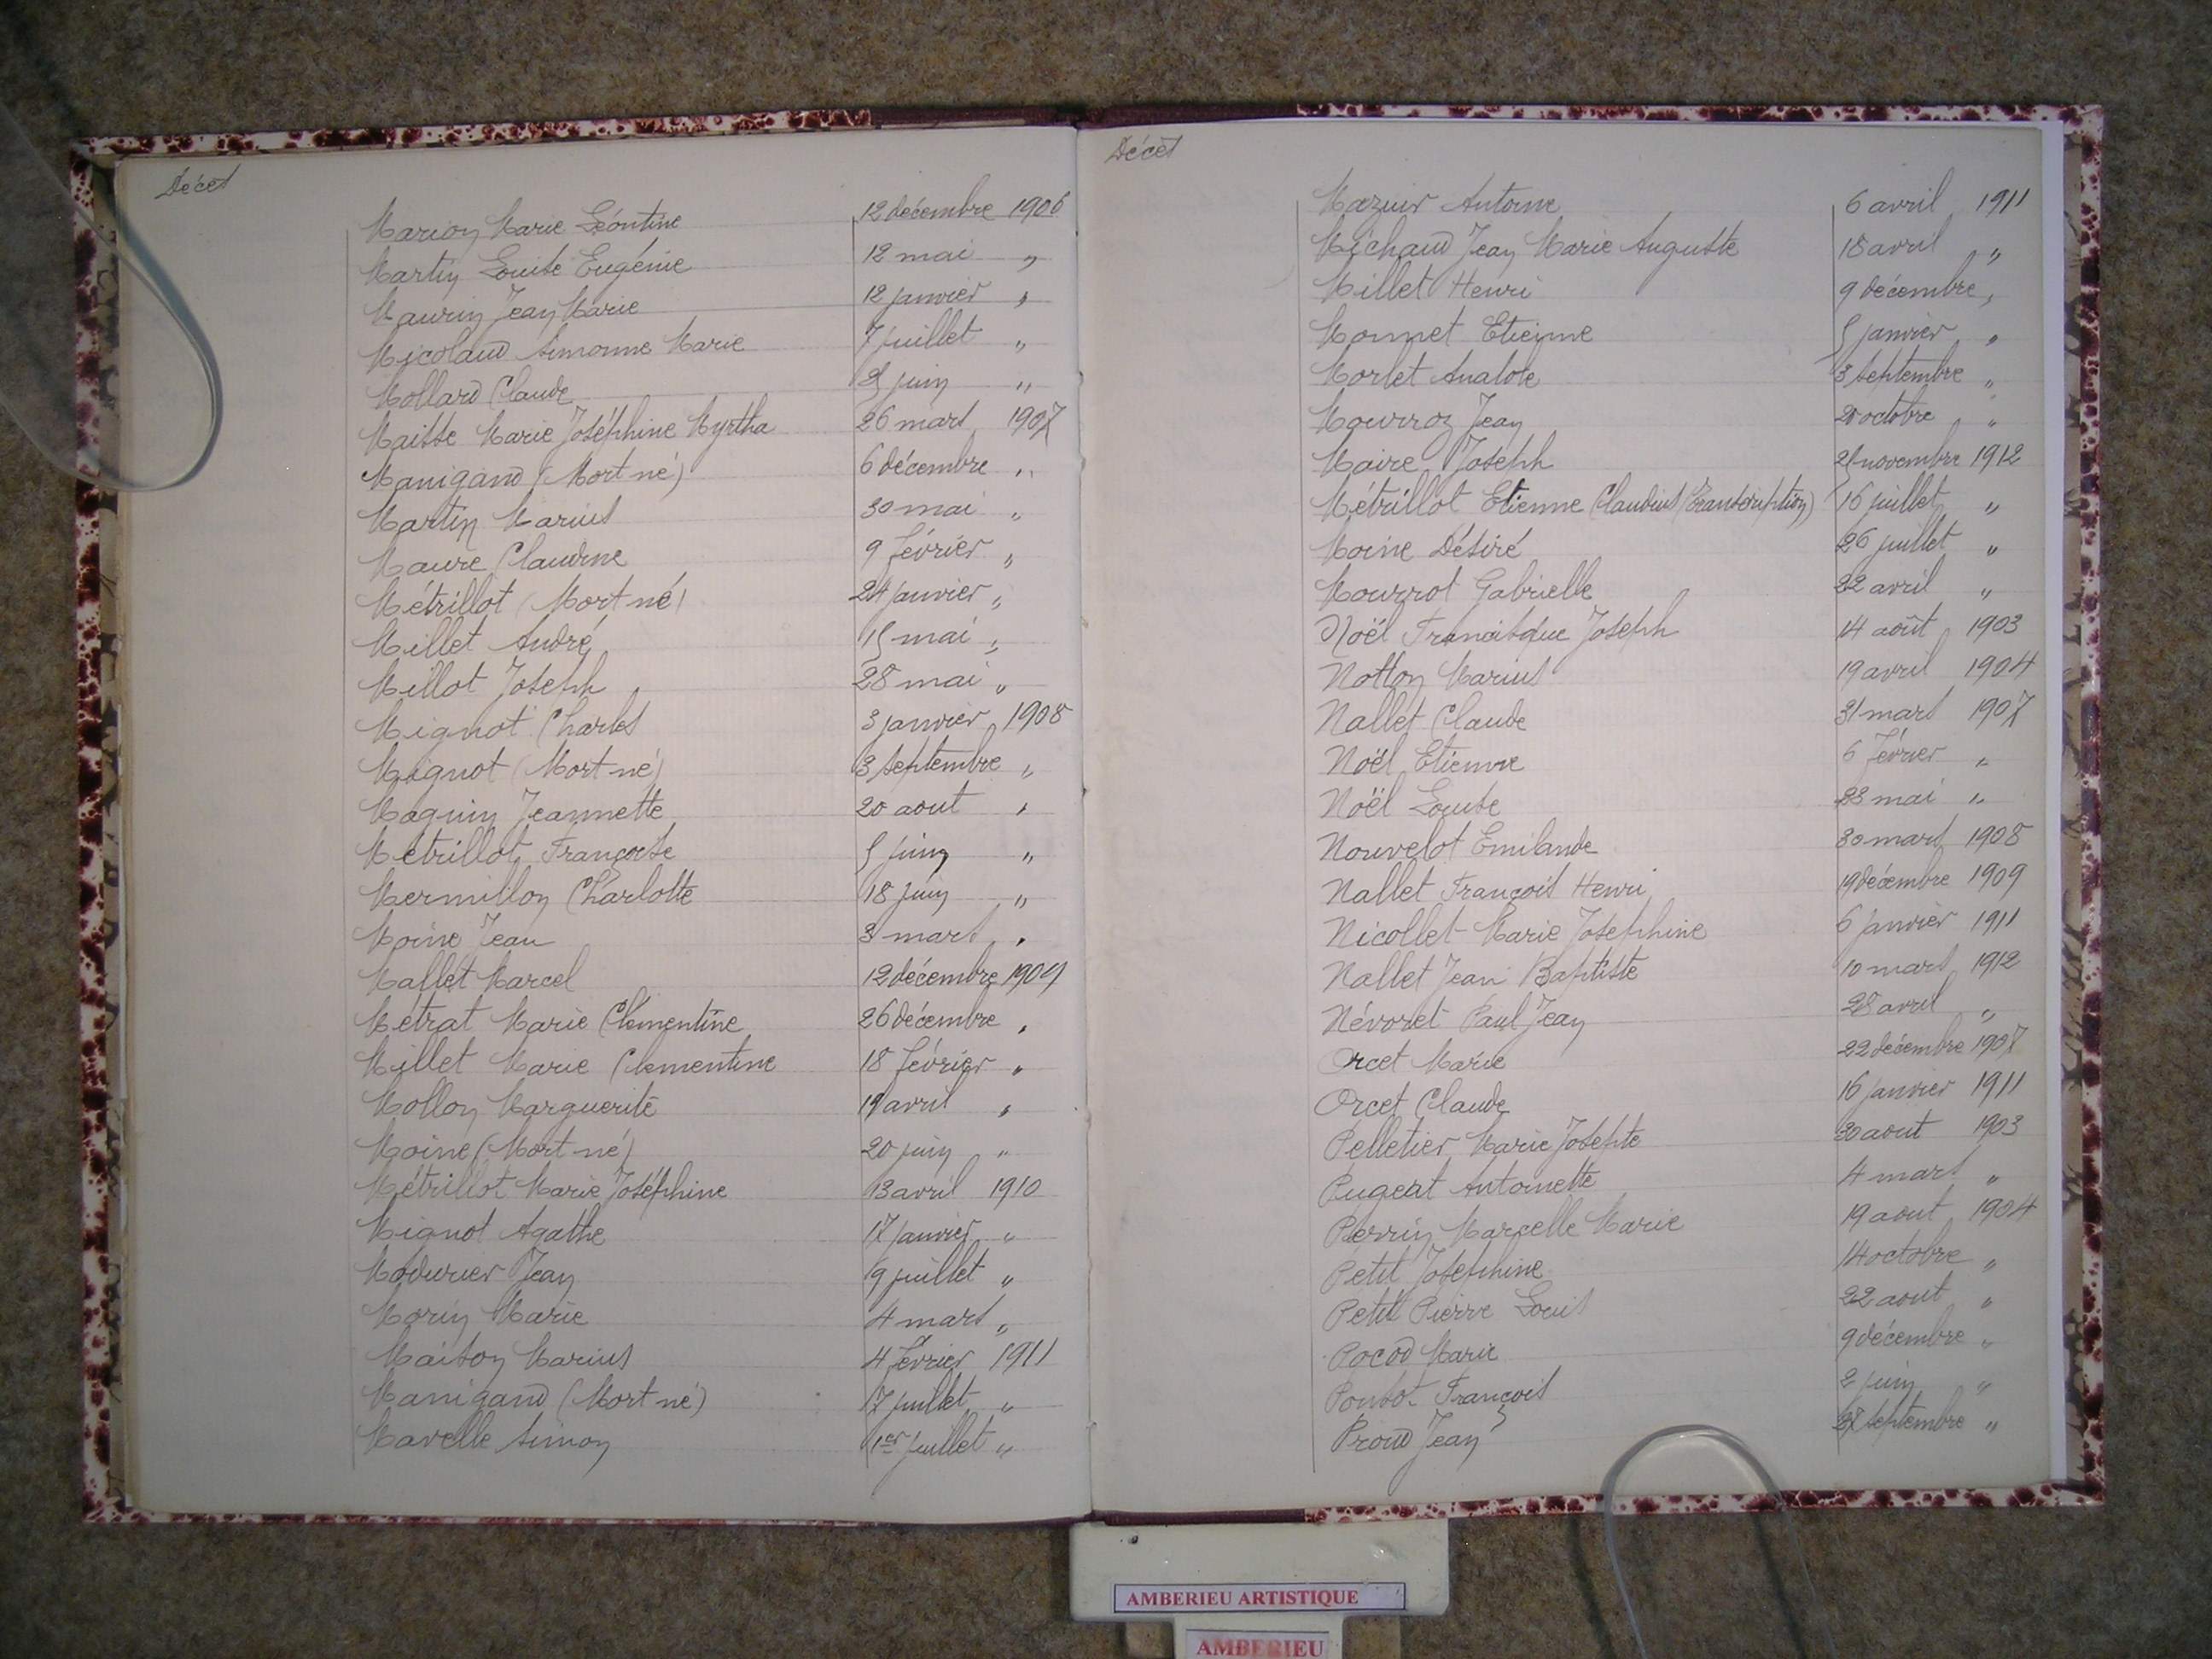 Décès
Marion Marie Léontine 12 décembre 1906
Martin Louise Eugénie 12 mai "
Maurin Jean Marie 12 janvier "
Micolaud Simonne Marie 7 juillet "
Mollard Claude juin "
Maisse Marie Joséphine Myrtha 26 mars 1907
Manigand (Mort-né) 6 décembre "
Martin Marius 30 mai "
Maure Claudine 9 février "
Métrillot (Mort-né) 24 janvier "
Millet André 15 mai "
Millot Joseph 28 mai "
Mignot Charles 3 janvier 1908
Mignot (Mort-né) 3 septembre "
Maguin Jeannette 20 aout "
Métrillot Françoise 5 juin "
Mermillon Charlotte 18 juin "
Moine Jean 3 mars "
Mallet Marcel 12 décembre 1909
Métrat Marie Clémentine 26 décembre "
Millet Marie Clementine 18 février "
Mollon Marguerite 19 avril "
Moine (Mort-né) 20 juin "
Métrillot Marie Joséphine 13 avril 1910
Mignot Agathe 17 janvier "
Modurier Jean 19 juillet "
Morin Marie 4 mars "
Maison Marius 4 février 1911
Manigand (Mort-né) 17 juillet "
Mavelle Simon 1er juillet "
Décès
Mazuir Antoine 6 avril 1911
Michaud Jean Marie Auguste 18 avril "
Millet Henri 9 décembre "
Monnet Etienne 5 janvier "
Morlet Anatole 3 septembre "
Mourroz Jean octobre "
Maire Joseph 21 novembre 1912
Métrillot Etienne Claudius (Transcription) 16 juillet "
Moine Désiré 26 juillet "
Mourrot Gabrielle 22 avril "
Noël Francisque Joseph 14 août 1903
Notton Marius 19 avril 1904
Nallet Claude 31 mars 1907
Noël Etienne 6 février "
Noël Louise 23 mai "
Nouvelot Emilande 30 mars 1908
Nallet François Henri 19 décembre 1909
Nicollet Marie Joséphine 6 janvier 1911
Nallet Jean Baptiste 10 mars 1912
Névoret Paul Jean 28 avril "
Orcet Marie 22 décembre 1907
Orcet Claude 16 janvier 1911
Pelletier Marie Josephte 30 aout 1903
Pugeat Antoinette 4 mars "
Perrin Marcelle Marie 19 aout 1904
Petit Joséphine 14 octobre "
Petit Pierre Louis 22 aout "
Pocod Marie 9 décembre "
Ponsot François 2 juin "
Proud Jean 27 septembre "
AMBERIEU ARTISTIQUE
AMBERIEU